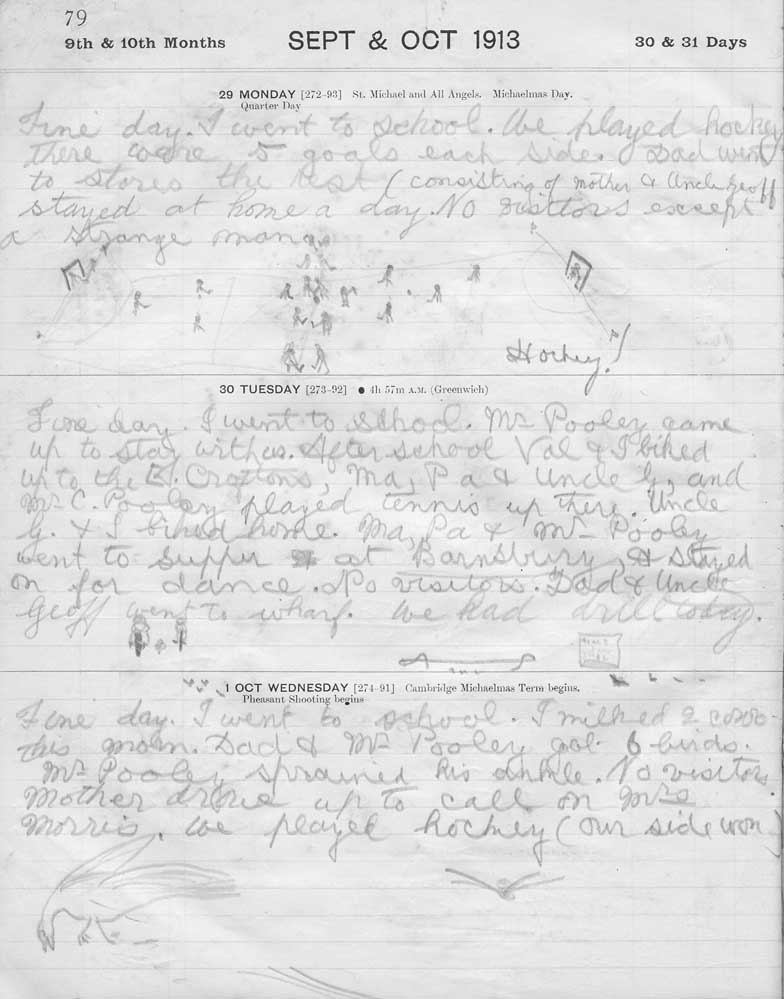 79
9th & 10th Months SEPT & OCT 1913 30 & 31 Days
29 MONDAY [272-93] St. Michael and All Angels. Michaelmas Day.
Quarter Day
Fine day. I went to school. We played hockey
there were 5 goals each side. Dad went
to stores the rest (consisting of mother & Uncle Geoff
stayed at home a day. No visitors except
a strange man
Hockey!
30 TUESDAY [273-92] ● 4h 57m A.M. (Greenwich)
Fine day. I went to school. Mr Pooley came
up to stay with us. After school Val & I biked
up to the Croftons, Ma, Pa & Uncle G, and
Mr C. Pooley played tennis up there. Uncle
G. & I biked home. Ma, Pa & Mr Pooley
went to supper at Barnsbury, & stayed
on for dance. No visitors. Dad & Uncle
Geoff went to wharf. We had drill today.
1 OCT WEDNESDAY [274-91] Cambridge Michaelmas Term begins.
Pheasant Shooting begins
Fine day. I went to school. I milked 2 cows
this morn. Dad & Mr Pooley got 6 birds.
Mr Pooley sprained his ankle. No visitors.
Mother drove up to call on Mrs
Morris. We played hockey (our side won)